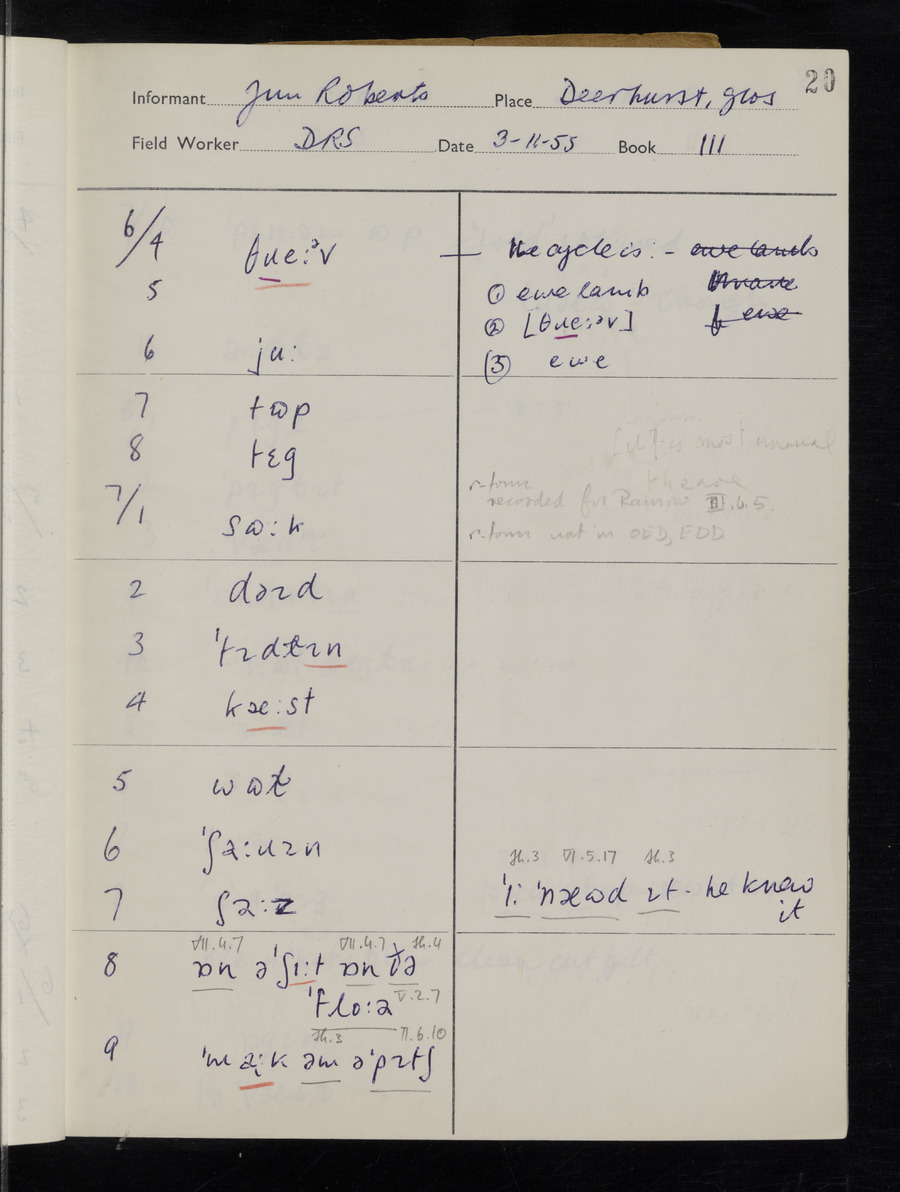 20
Informant Jim Roberts Place Deerhurst, Glos
Field Worker DRS Date 3-11-55 Book III
6/4 θɹeːᵊv — the cycle is:- ewe lamb
5 ① ewe lamb
② [θɹeːᵊv] ewe
6 juː ③ ewe
7 tɒp
8 tɛg [ɹ] is most unusual
r-form
7/1 sɒːk recorded for Ramsow III.6.5
r-form not in OED, EDD
2 dəɹd
3 ˈtɹdtɪn
4 kæːst
5 wɒt
6 ˈʃəːɹɪn
Th.3 VI.5.17 Th.3
7 ʃəːz ˈiː ˈnæɷd ɪt - he knew
it
VII.4.7 VII.4.7 Th.4
8 ɒn əˈʃiːt ɒn ðə
ˈfloːə V.2.7
Th.3 II.6.10
9 ˈməːk əm əˈpɪtʃ